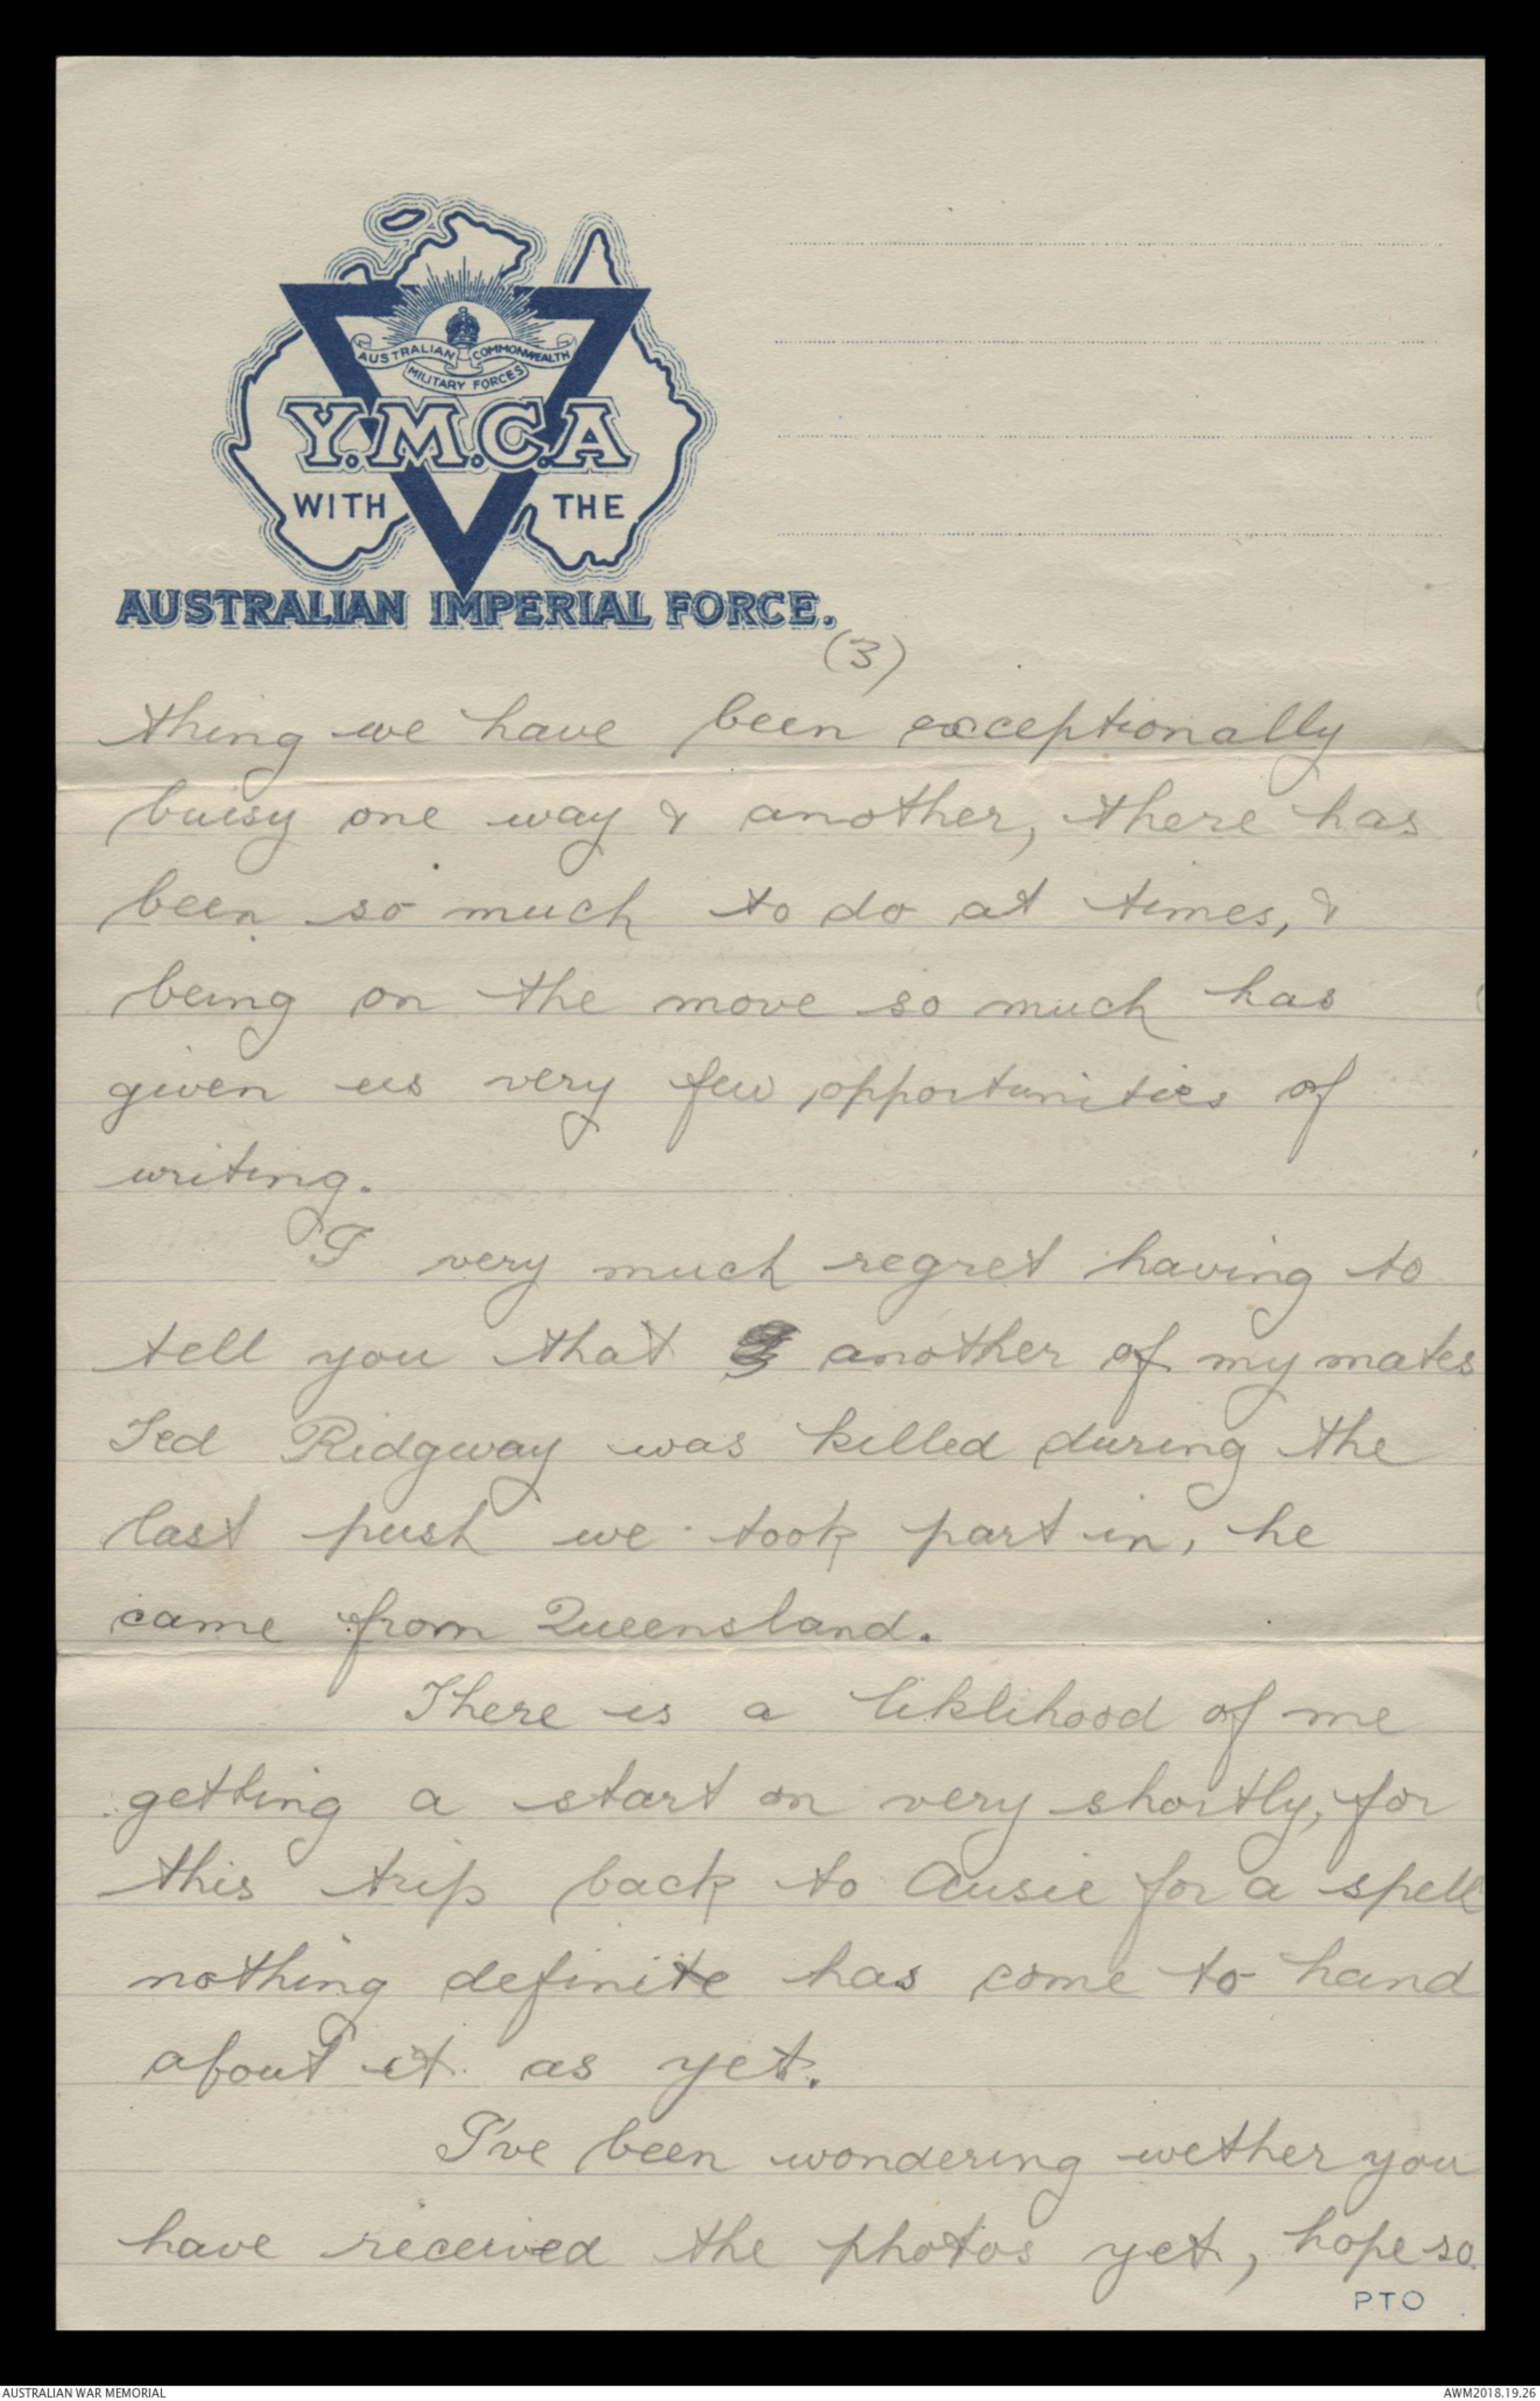 AUSTRALIAN COMMONWEALTH
MILITARY FORCES
Y.M.C.A
WITH THE
AUSTRALIAN IMPERIAL FORCE.
(3)
thing we have been exceptionally
buisy one way & another, there has
been so much to do at times, &
being on the move so much has
given us very few opportunities of
writing.
I very much regret having to
tell you that another of my mates
Ted Ridgway was killed during the
last push we took part in, he
came from Queensland.
There is a liklihood of me
getting a start on very shortly, for
this trip back to Ausie for a spell
nothing definite has come to hand
about it as yet.
I've been wondering wether you
have received the photos yet, hope so.
PTO
AUSTRALIAN WAR MEMORIAL
AWM2018.19.26